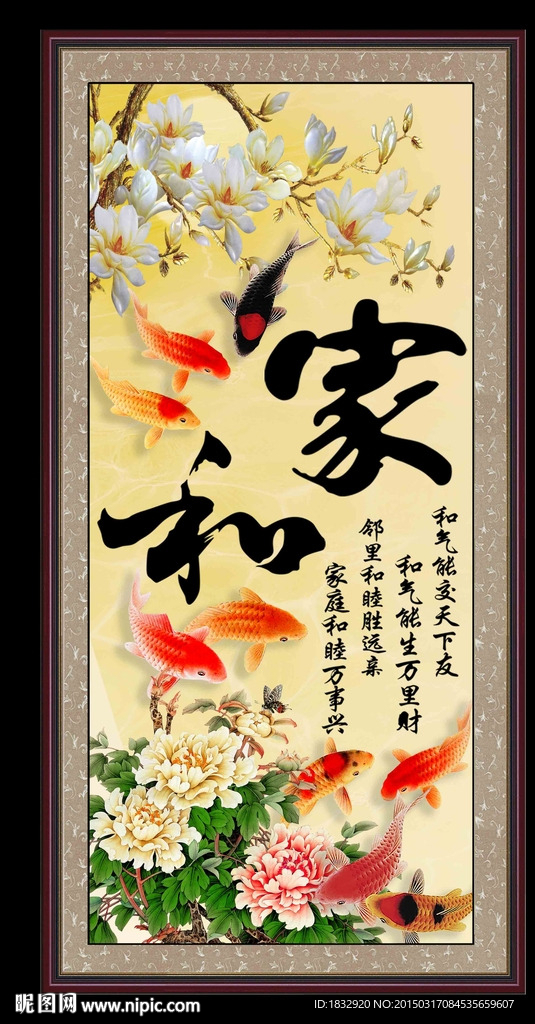 家和
和气能交天下友
和气能生万里财
邻里和睦胜远亲
家庭和睦万事兴
昵图网 www.nipic.com
ID:1832920 NO:20150317084535659607